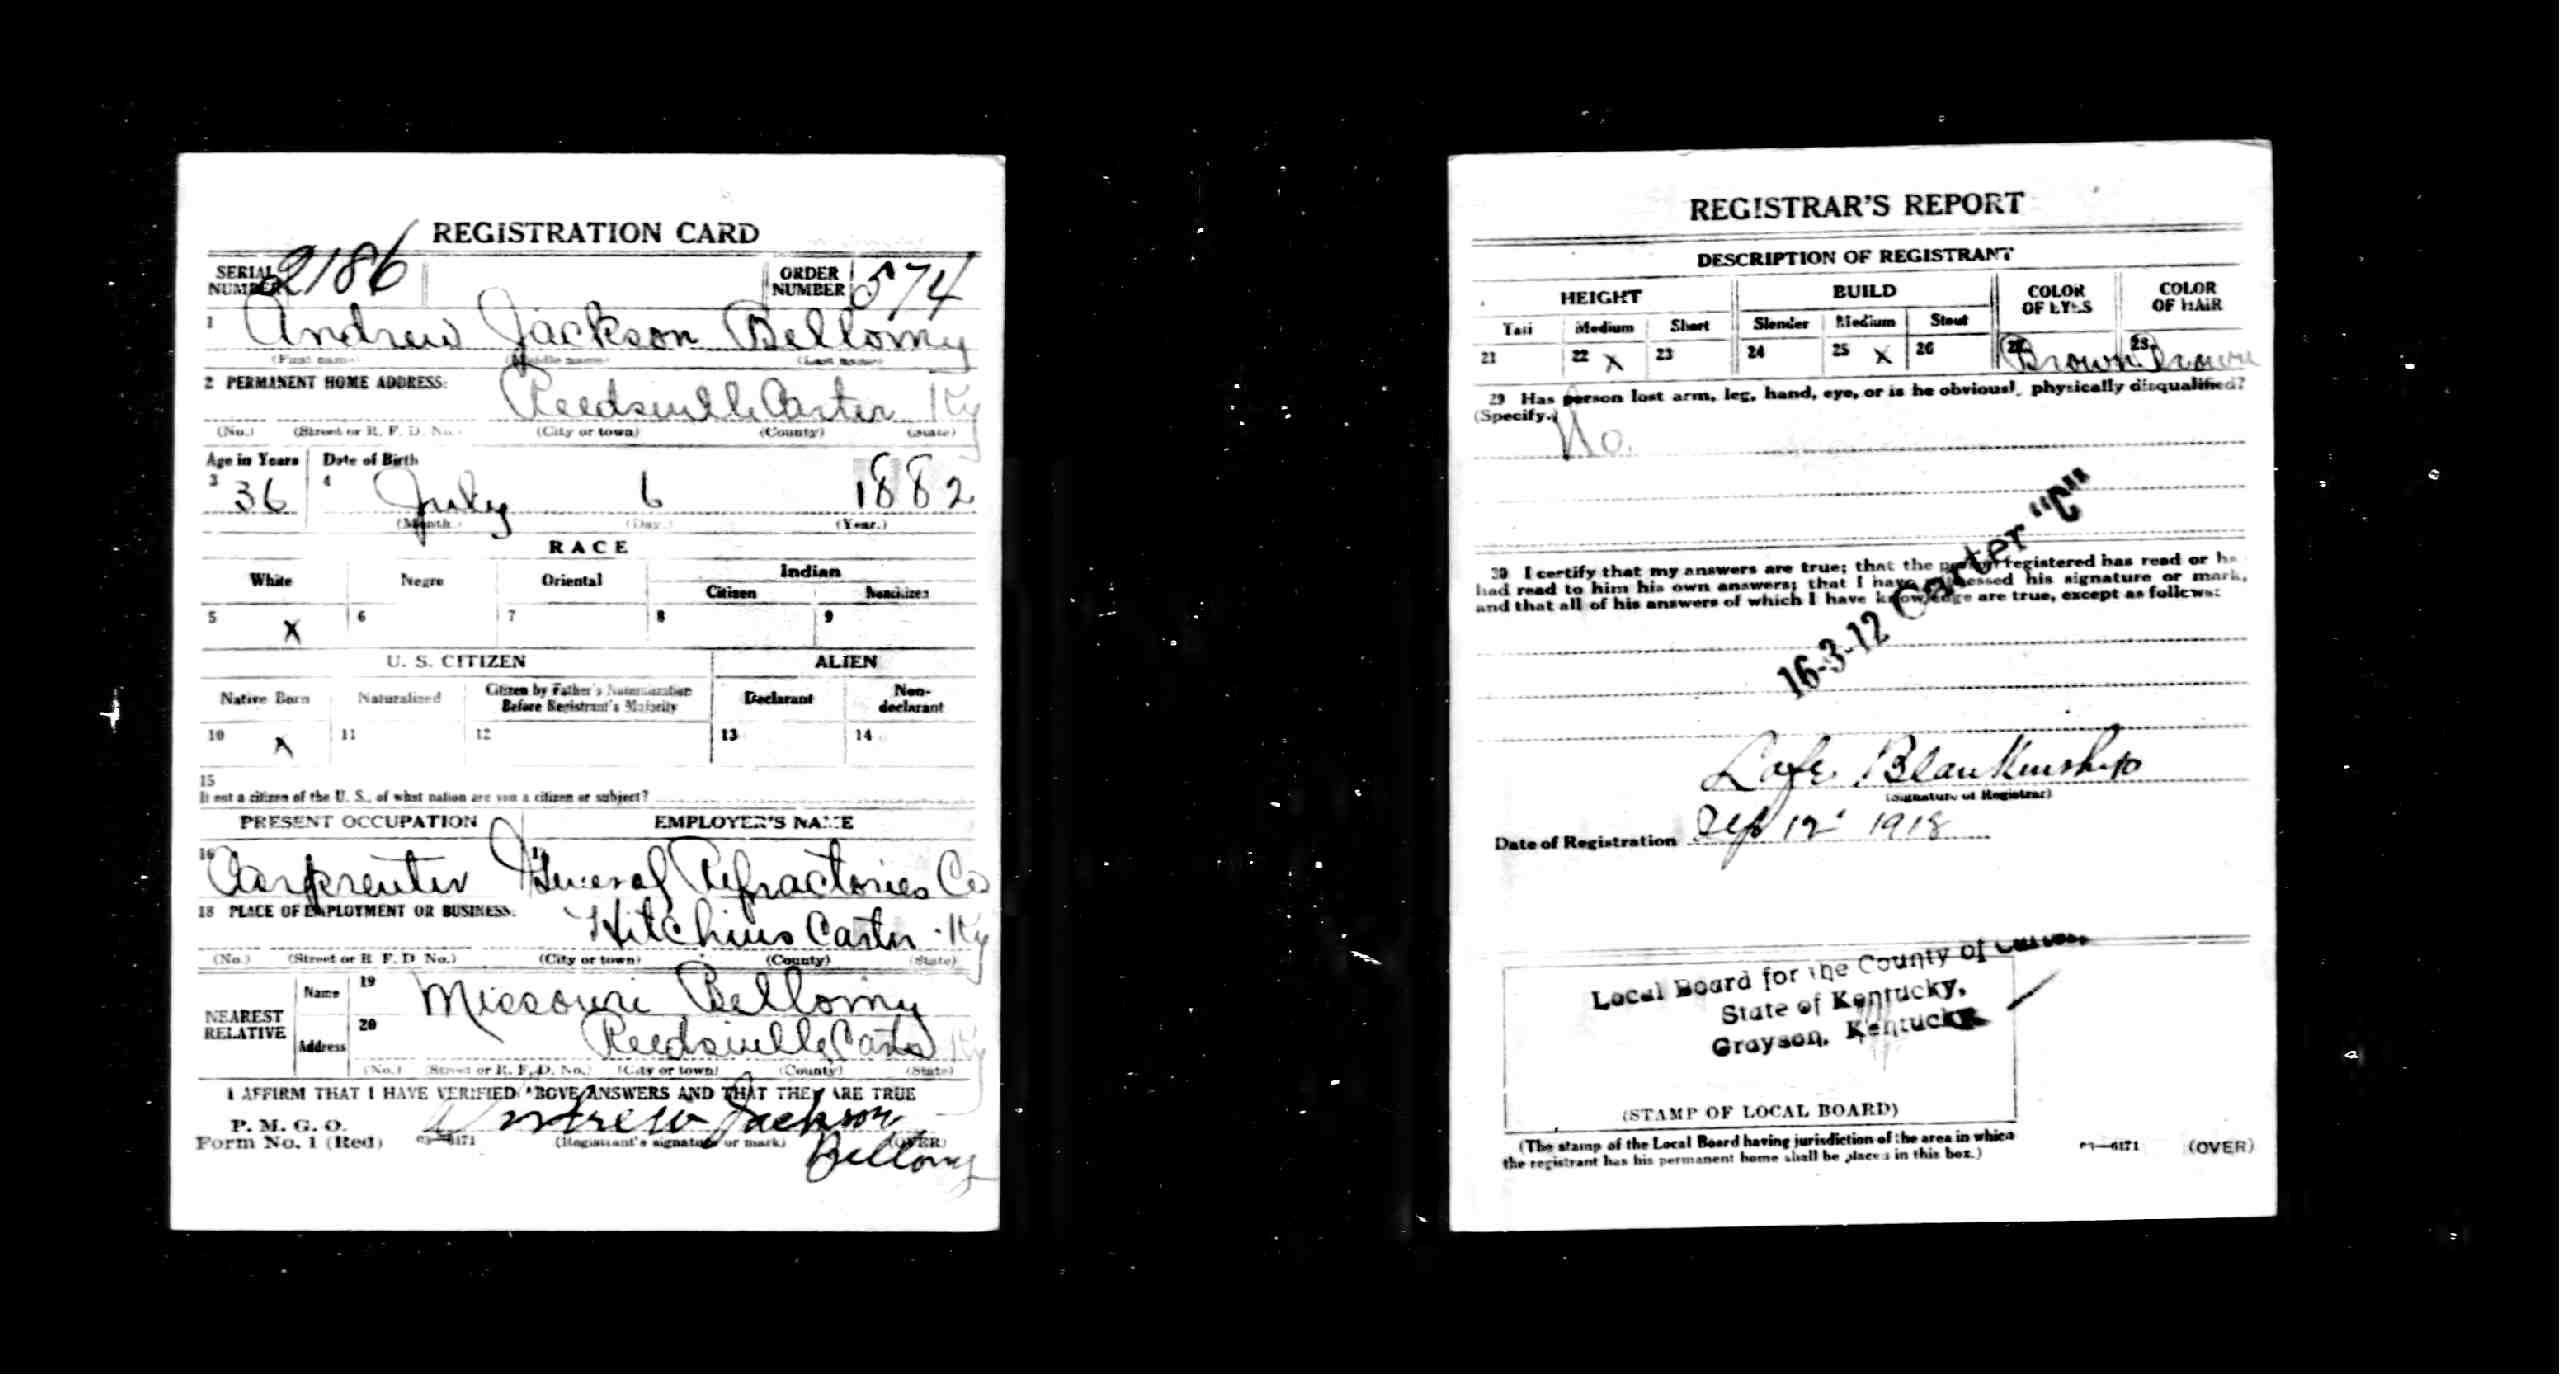 REGISTRATION CARD
SERIAL NUMBER 2186
ORDER NUMBER 574
1 Andrew Jackson Bellomy
(First name) (Middle name) (Last name)
2 PERMANENT HOME ADDRESS:
Reedsville Carter Ky
(No.) (Street or R. F. D. No.) (City or town) (County) (State)
Age in Years Date of Birth
3 36 4 July 6 1882
(Month.) (Day.) (Year.)
RACE
White Negro Oriental Indian
Citizen Noncitizen
5 X 6 7 8 9
U. S. CITIZEN ALIEN
Native Born Naturalized Citizen by Father's Naturalization Before Registrant's Majority Declarant Non-declarant
10 X 11 12 13 14
15
If not a citizen of the U. S., of what nation are you a citizen or subject?
PRESENT OCCUPATION EMPLOYER'S NAME
16 Carpenter 17 General Refractories Co
18 PLACE OF EMPLOYMENT OR BUSINESS:
Hitchins Carter Ky
(No.) (Street or R. F. D. No.) (City or town) (County) (State)
NEAREST RELATIVE
Name 19 Missouri Bellomy
Address 20 Reedsville Carter Ky
(No.) (Street or R. F. D. No.) (City or town) (County) (State)
I AFFIRM THAT I HAVE VERIFIED ABOVE ANSWERS AND THAT THEY ARE TRUE
P. M. G. O.
Form No. 1 (Red) 03—6171 Andrew Jackson
(Registrant's signature or mark) (OVER)
Bellomy
REGISTRAR'S REPORT
DESCRIPTION OF REGISTRANT
HEIGHT BUILD COLOR OF EYES COLOR OF HAIR
Tall Medium Short Slender Medium Stout
21 22 X 23 24 25 X 26 27 Brown 28 Brown
29 Has person lost arm, leg, hand, eye, or is he obviously physically disqualified?
(Specify.)
No.
30 I certify that my answers are true; that the person registered has read or has
had read to him his own answers; that I have witnessed his signature or mark,
and that all of his answers of which I have knowledge are true, except as follows:
16-3-12 Carter "C"
Lafe Blankenship
(Signature of Registrar)
Date of Registration Sep 12 1918
Local Board for the County of Carter,
State of Kentucky,
Grayson, Kentucky
(STAMP OF LOCAL BOARD)
(The stamp of the Local Board having jurisdiction of the area in which
the registrant has his permanent home shall be placed in this box.)
03—6171 (OVER)